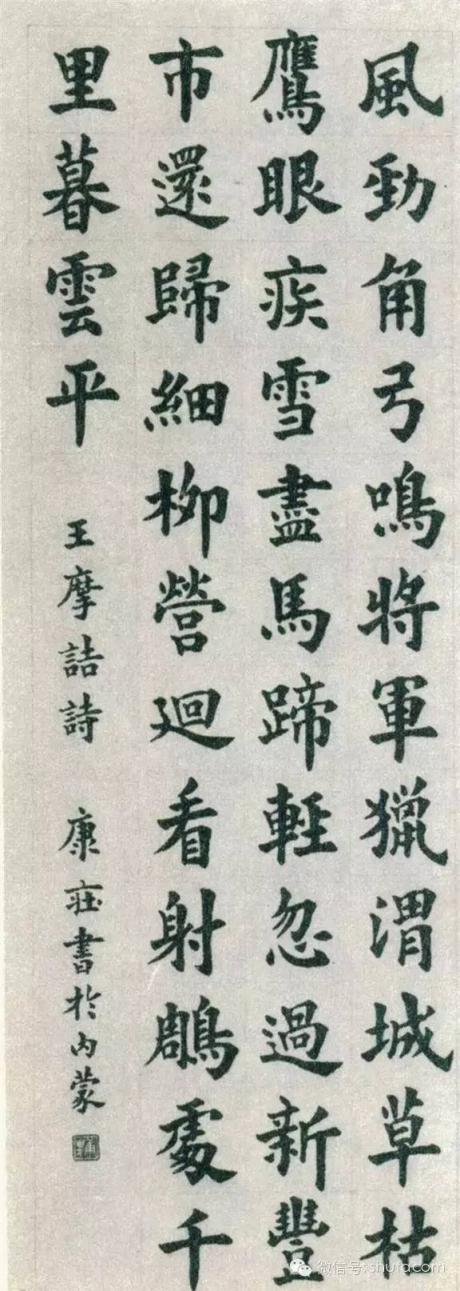 風勁角弓鳴將軍獵渭城草枯
鷹眼疾雪盡馬蹄輕忽過新豐
市還歸細柳營迴看射鵰處千
里暮雲平
王摩詰詩 康莊書於內蒙
微信号: shufa.com